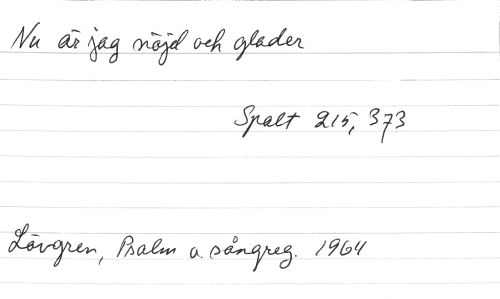 Nu är jag nöjd och glader
Spalt 215, 373
Lövgren, Psalm o. sångreg. 1964